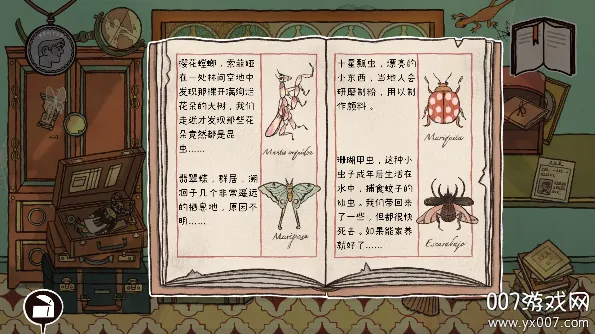 樱花螳螂，索菲娅
在一处林间空地中
发现那棵开满绚烂
花朵的大树，我们
走近才发现那些花
朵竟然都是昆
虫……
Mantis orquidea
翡翠蝶，群居，溯
洄于几个非常遥远
的栖息地，原因不
明……
Mariposa
十星瓢虫，漂亮的
小东西，当地人会
研磨制粉，用以制
作颜料。
Mariquita
珊瑚甲虫，这种小
虫子成年后生活在
水中，捕食蚊子的
幼虫。我们带回来
了一些，但都很快
死去。如果能家养
就好了……
Escarabajo
007游戏网
www.yx007.com